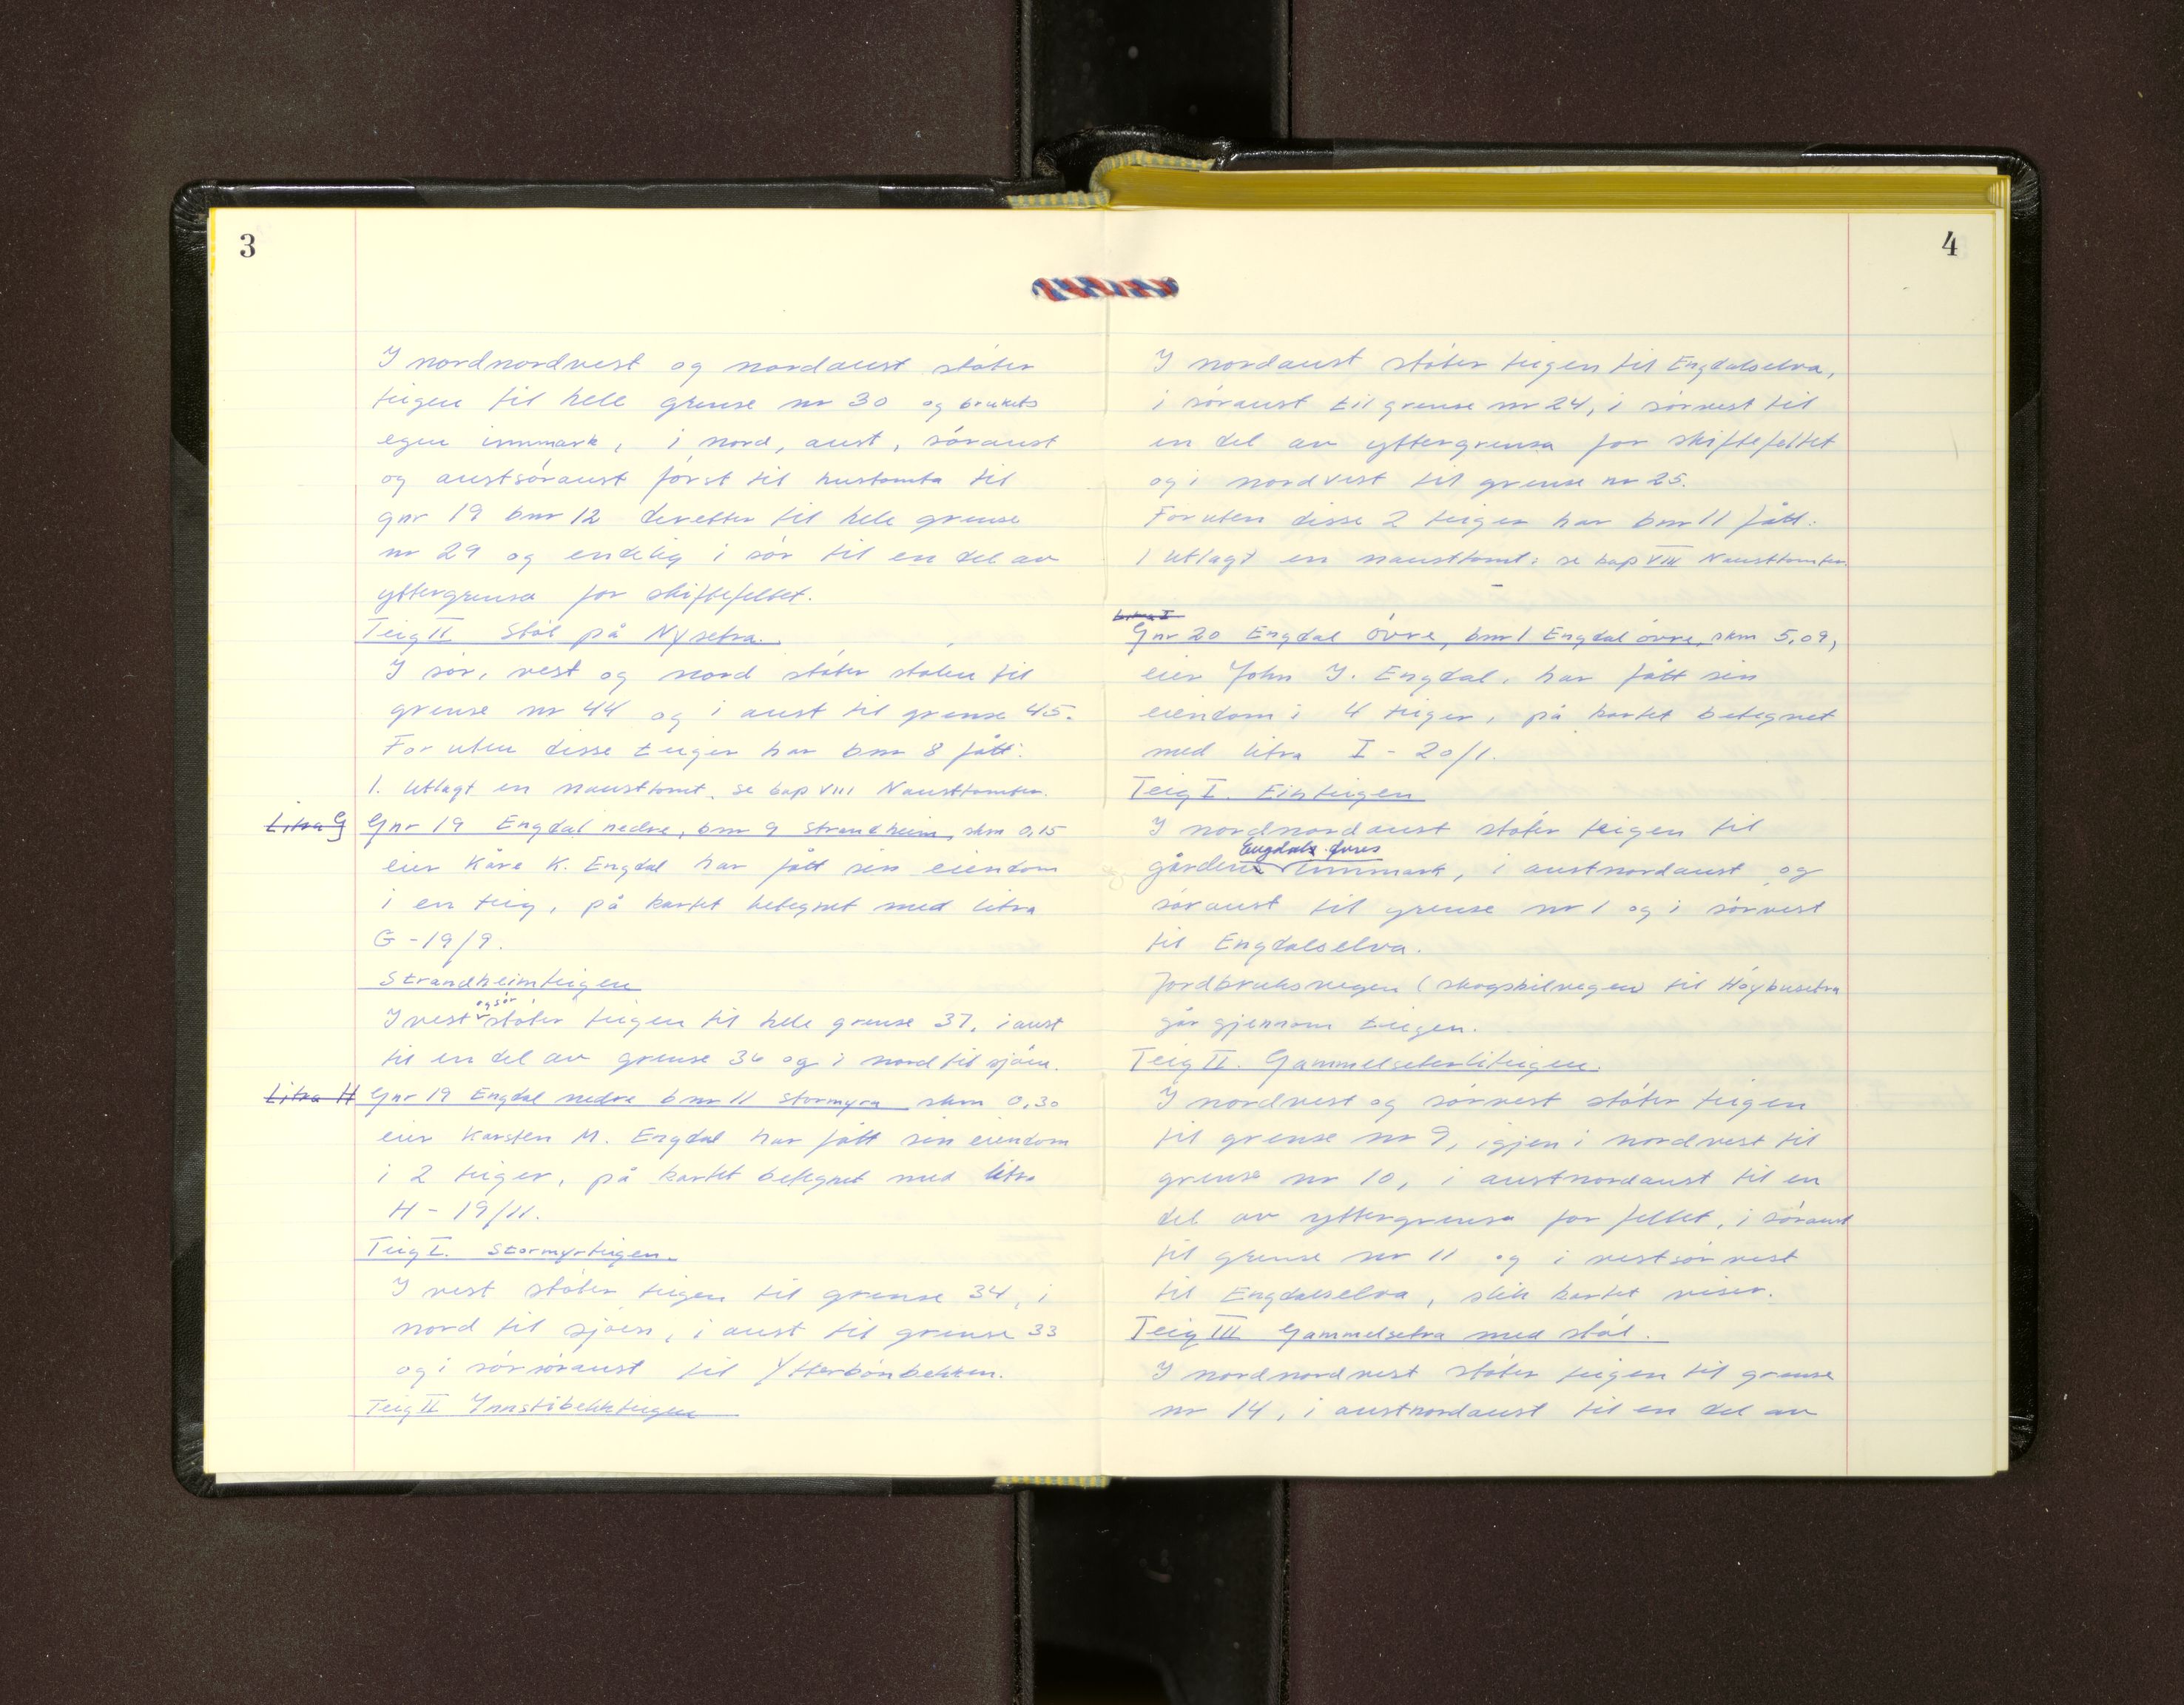 3
I nordnordvest og nordaust støter
teigen til hele grense nr 30 og brukets
egen innmark, i nord, aust, søraust
og austsøraust først til hustomta til
gnr 19 bnr 12 deretter til hele grense
nr 29 og endelig i sør til en del av
yttergrensa for skiftefeltet.
Teig II Støl på Nysetra.
I sør, vest og nord støter stølen til
grense nr 44 og i aust til grense 45.
Foruten disse teiger har bnr 8 fått:
1. Utlagt en nausttomt, se kap VIII Nausttomter.
Litra G Gnr 19 Engdal nedre, bnr 9 Strandheim, skm 0,15
eier Kåre K. Engdal har fått sin eiendom
i en teig, på kartet betegnet med litra
G - 19/9.
Strandheimteigen
og sør
I vest støter teigen til hele grense 37, i aust
til en del av grense 36 og i nord til sjøen.
Litra H Gnr 19 Engdal nedre bnr 11 Stormyra skm 0,30
eier Karsten M. Engdal har fått sin eiendom
i 2 teiger, på kartet betegnet med litra
H - 19/11.
Teig I. Stormyrteigen.
I vest støter teigen til grense 34, i
nord til sjøen, i aust til grense 33
og i sørsøraust til Ytterbønbekken.
Teig II Innstibekkteigen
4
I nordaust støter teigen til Engdalselva,
i søraust til grense nr 24, i sørvest til
en del av yttergrensa for skiftefeltet
og i nordvest til grense nr 25.
Foruten disse 2 teiger har bnr 11 fått:
1 Utlagt en nausttomt: se kap VIII Nausttomter.
Litra I
Gnr 20 Engdal øvre, bnr 1 Engdal øvre, skm 5,09,
eier John J. Engdal, har fått sin
eiendom i 4 teiger, på kartet betegnet
med litra I - 20/1.
Teig I. Eikteigen
I nordnordaust støter teigen til
Engdal øvres
gårdens innmark, i austnordaust og
søraust til grense nr 1 og i sørvest
til Engdalselva.
Jordbruksvegen (skogsbilvegen) til Høybusetra
går gjennom teigen.
Teig II. Gammelseterliteigen.
I nordvest og sørvest støter teigen
til grense nr 9, igjen i nordvest til
grense nr 10, i austnordaust til en
del av yttergrensa for feltet, i søraust
til grense nr 11 og i vestsørvest
til Engdalselva, slik kartet viser.
Teig III Gammelsetra med støl.
I nordnordvest støter teigen til grense
nr 14, i austnordaust til en del av